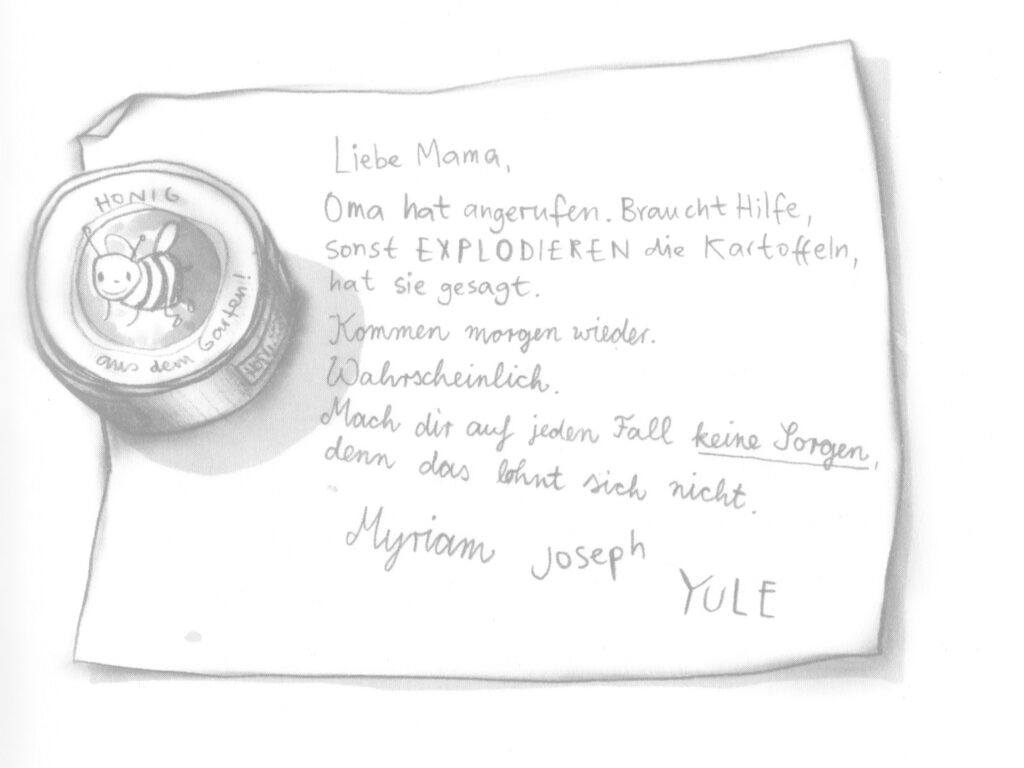 HONIG
aus dem Garten!
HONIG
Liebe Mama,
Oma hat angerufen. Braucht Hilfe,
sonst EXPLODIEREN die Kartoffeln,
hat sie gesagt.
Kommen morgen wieder.
Wahrscheinlich.
Mach dir auf jeden Fall keine Sorgen,
denn das lohnt sich nicht.
Myriam Joseph
YULE